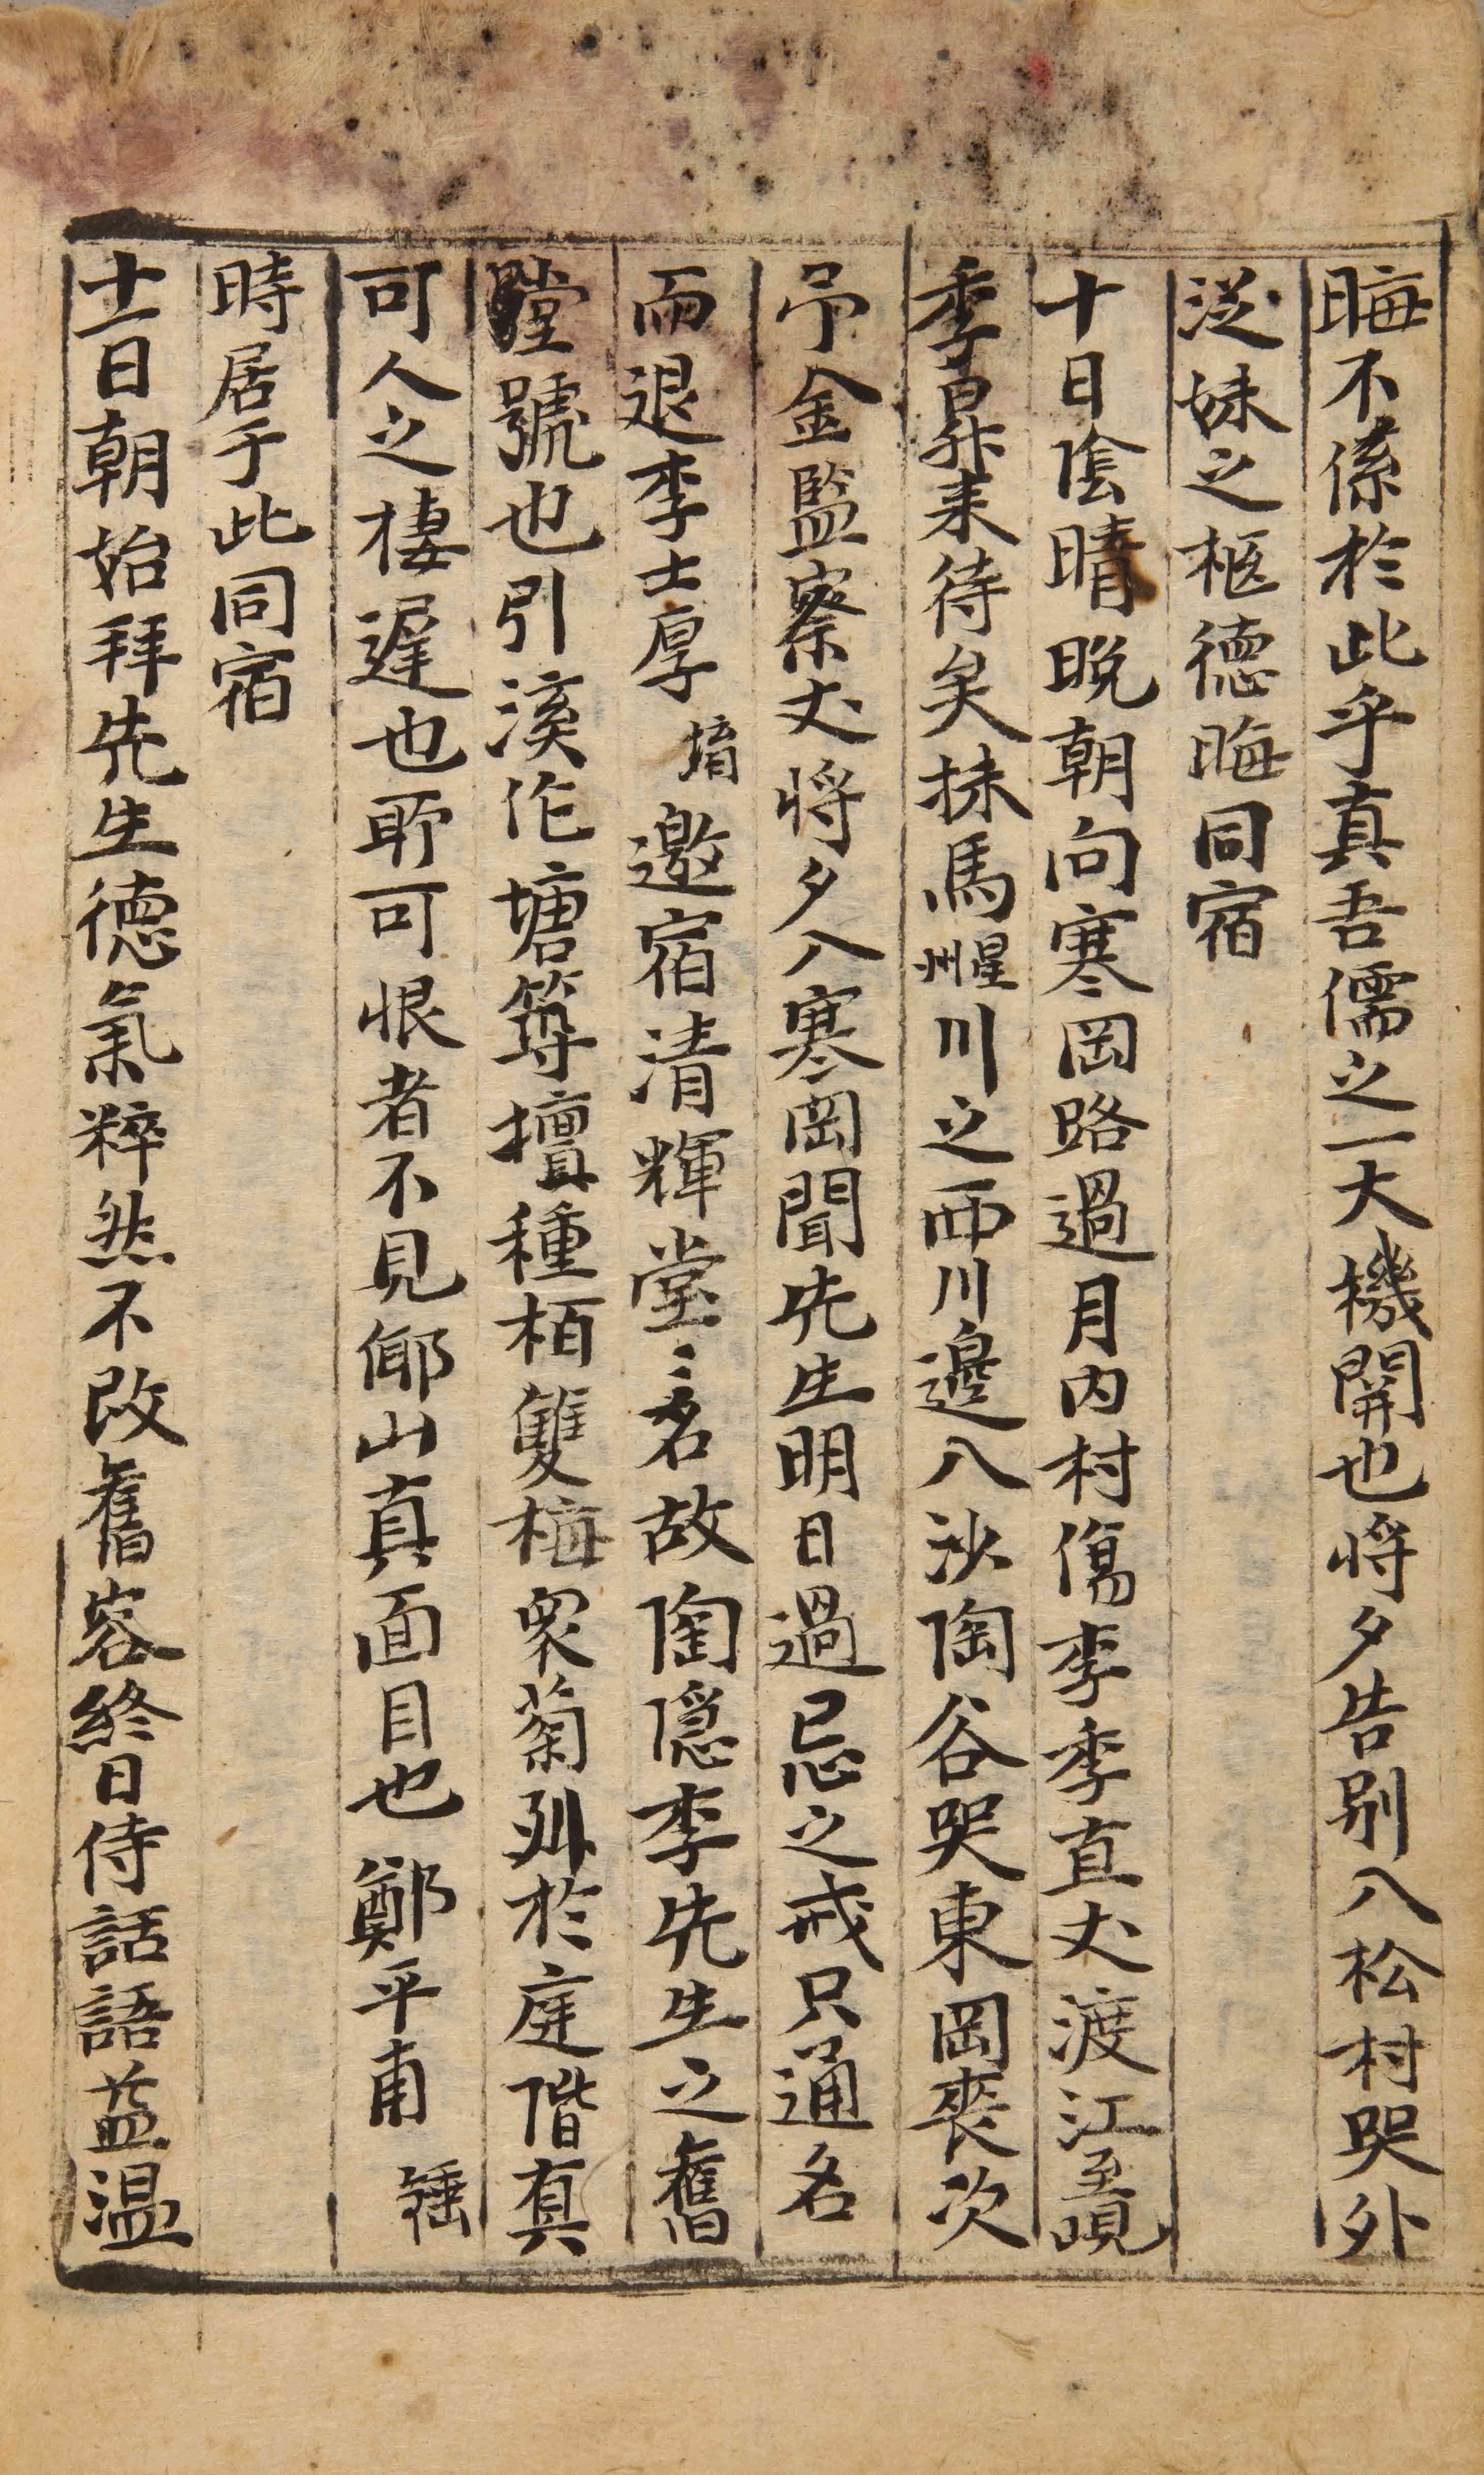 晦不係於此乎真吾儒之一大機關也將夕告別入松村哭外
從妹之柩德晦同宿
十日陰晴晩朝向寒岡路過月內村傷李季直丈渡江至覞
季昷昨來待矣抹馬星州川之西川邊入沙陶谷哭東岡喪次
吊金監察丈將夕入寒岡聞先生明日過忌之戒只通名
而退李士厚堉邀宿清輝堂〻名故陶隱李先生之舊
號也引溪作塘築壇種栢雙梅衆菊列於庭階真
可人之棲遲也所可恨者不見倻山真面目也鄭平甫
時居于此同宿
十一日朝始拜先生德氣粹然不改舊容終日侍話語益溫